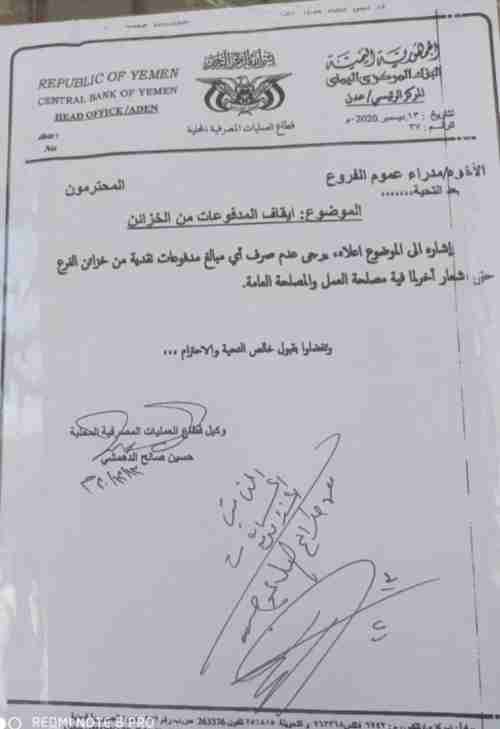 REPUBLIC OF YEMEN
CENTRAL BANK OF YEMEN
HEAD OFFICE/ADEN
No
قطاع العمليات المصرفية المحلية
الجمهورية اليمنية
البنك المركزي اليمني
المركز الرئيسي/عدن
تاريخ : ١٣ ديسمبر 2020م
الرقم : ٣٧
الأخوة/مدراء عموم الفروع المحترمون
بعد التحية،،،،،،،
الموضوع: ايقاف المدفوعات من الخزائن
بإشاره الى الموضوع اعلاه، يرجى عدم صرف أي مبالغ مدفوعات نقدية من خزائن الفرع
حتى اشعار أخر لما فية مصلحة العمل والمصلحة العامة.
وتفضلوا بقبول خالص التحية والاحترام ،،،
وكيل قطاع العمليات المصرفية المحلية
حسين صالح الدهمشي
REDMI NOTE 8 PRO